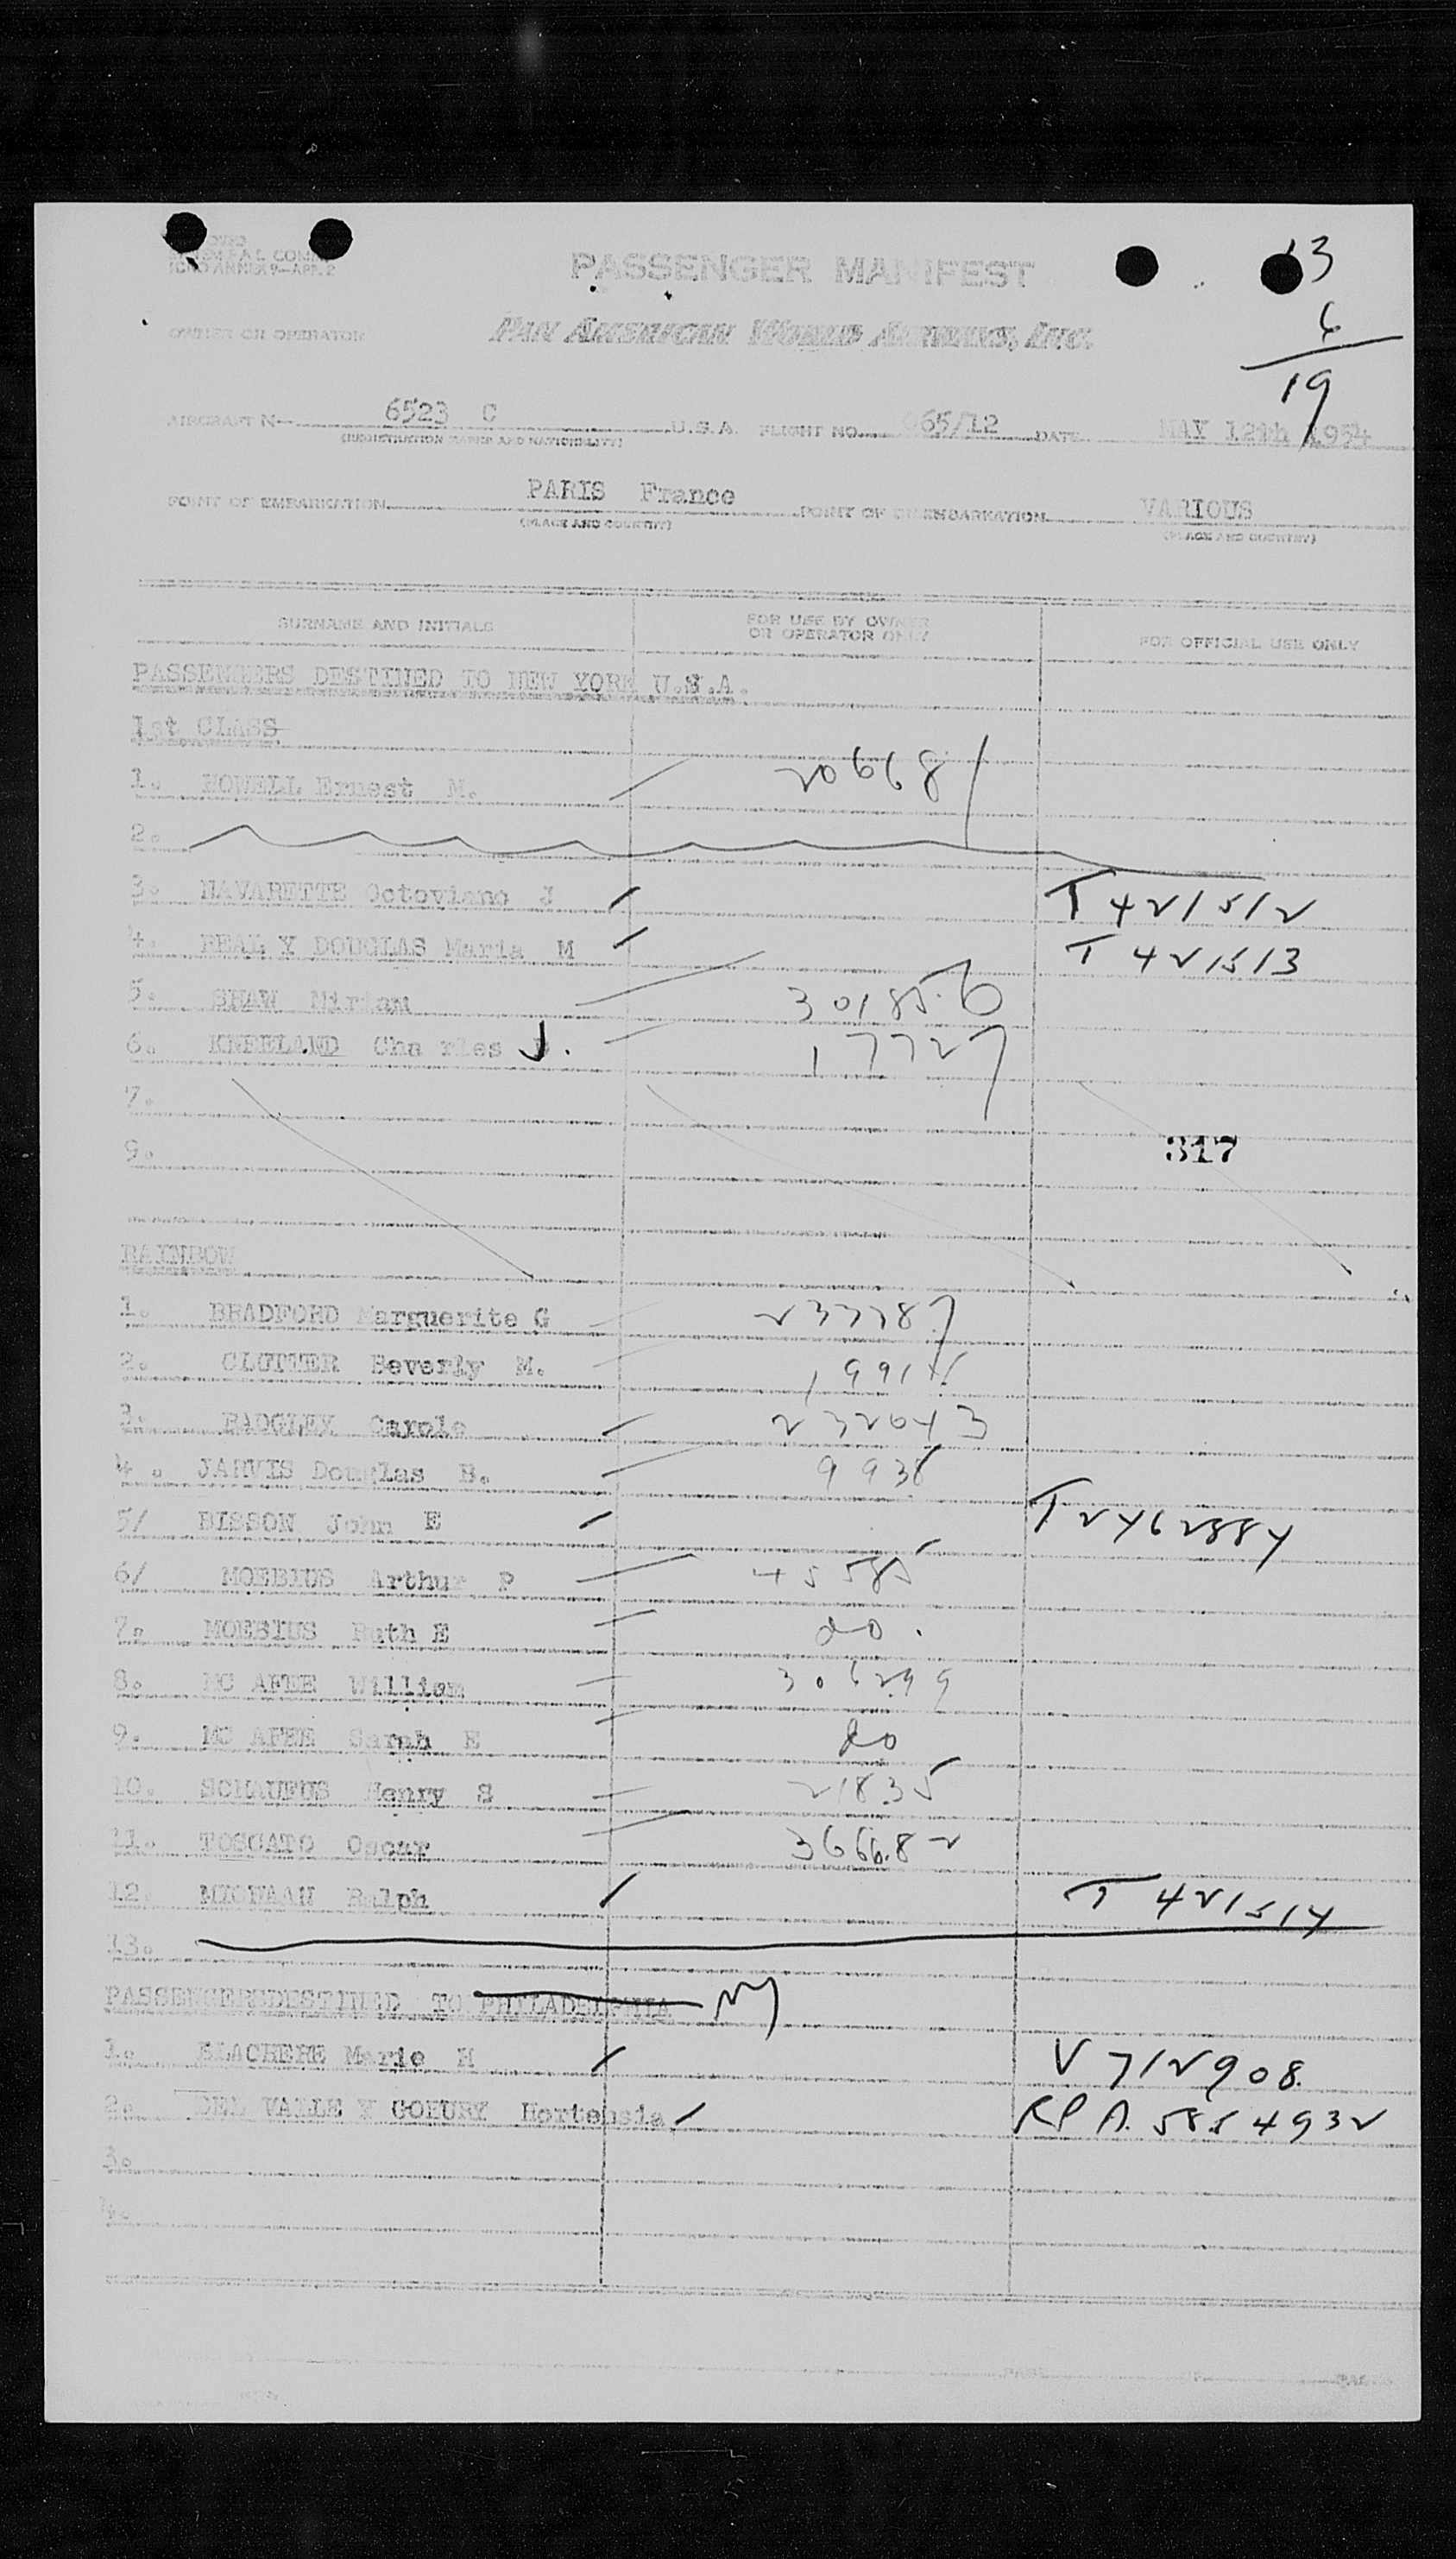 13
6
19
PASSENGER MANIFEST
OWNER OR OPERATOR PAN AMERICAN WORLD AIRWAYS, INC.
AIRCRAFT N— 6523 C U.S.A. FLIGHT NO. 065/12 DATE MAY 12th 1954
(REGISTRATION MARKS AND NATIONALITY)
POINT OF EMBARKATION PARIS France POINT OF DISEMBARKATION VARIOUS
(PLACE AND COUNTRY) (PLACE AND COUNTRY)
SURNAME AND INITIALS FOR USE BY OWNER OR OPERATOR ONLY FOR OFFICIAL USE ONLY
PASSENGERS DESTINED TO NEW YORK U.S.A.
1st CLASS
1. Ernest M. 20668
2.
3. NAVARETTE Octoviano J T 421512
4. REAL Y DOUGLAS Maria M T 421513
5. SHAW Miriam
6. KNEELAND Charles J. 17727
7.
9.
317
RAINBOW
1. BRADFORD Marguerite G
2. Beverly M.
3. BADGLEY Carole 232043
4. JARVIS Douglas B. 9935
5/ BISSON John E T2462884
6/ MOEBIUS Arthur P 45585
7. MOEBIUS Ruth E do.
8. MC AFEE William 306299
9. MC AFEE Sarah E do
10. SCHAUFUS Henry S 21835
11. TOSCATO Oscar 366682
12. Ralph T 421514
13.
PASSENGERS DESTINED TO PHILADELPHIA NY
1. BLACHERE Marie H V 712908.
2. DEL VALLE Y Hortensia RP A. 5854932
3.
4.